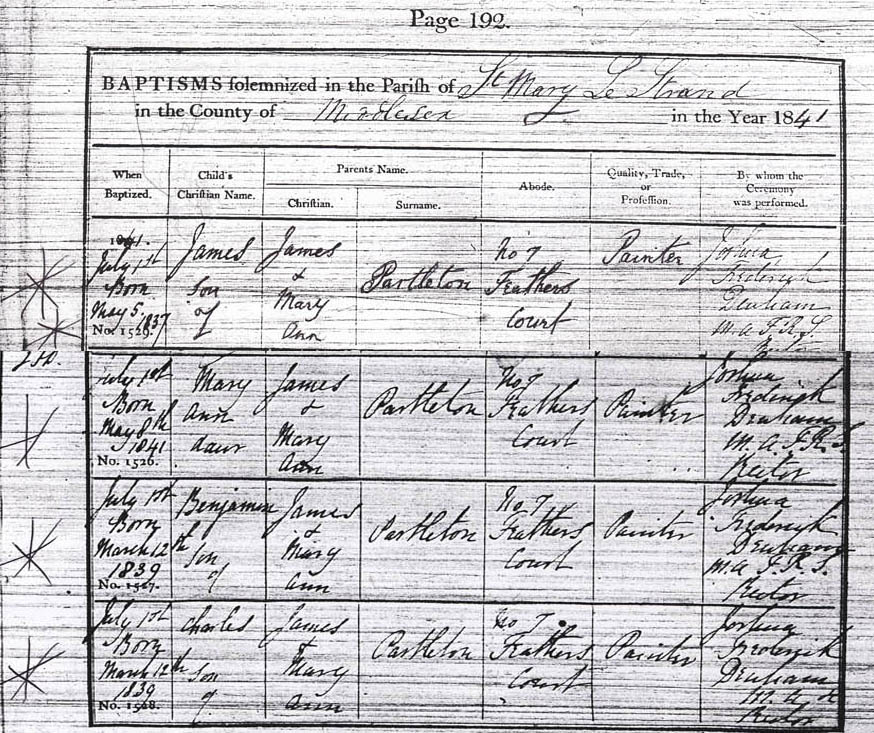 Page 192.
BAPTISMS solemnized in the Parish of St Mary Le Strand
in the County of Middlesex in the Year 1841
When Baptized. Child's Christian Name. Parents' Name. Abode. Quality, Trade, or Profession. By whom the Ceremony was performed.
Christian. Surname.
1841.
July 1st James James Partleton No 7 Painter Joshua
Born son & Feathers Frederick
May 5, 1837 of Mary Court Denham
No. 1525. Ann M.A F.R.S.
July 1st Mary James Partleton No 7 Painter Joshua
Born Ann & Feathers Frederick
May 8th daur Mary Court Denham
1841 Ann M.A. F.R.S.
No. 1526. Rector
July 1st Benjamin James Partleton No. 7 Painter Joshua
Born son & Feathers Frederick
March 12th of Mary Court Denham
1839 Ann M.A F.R.S.
No. 1527. Rector
July 1st Charles James Partleton No 7 Painter Joshua
Born son & Feathers Frederick
March 12th of Mary Court Denham
1839 Ann M.A
No. 1528. Rector